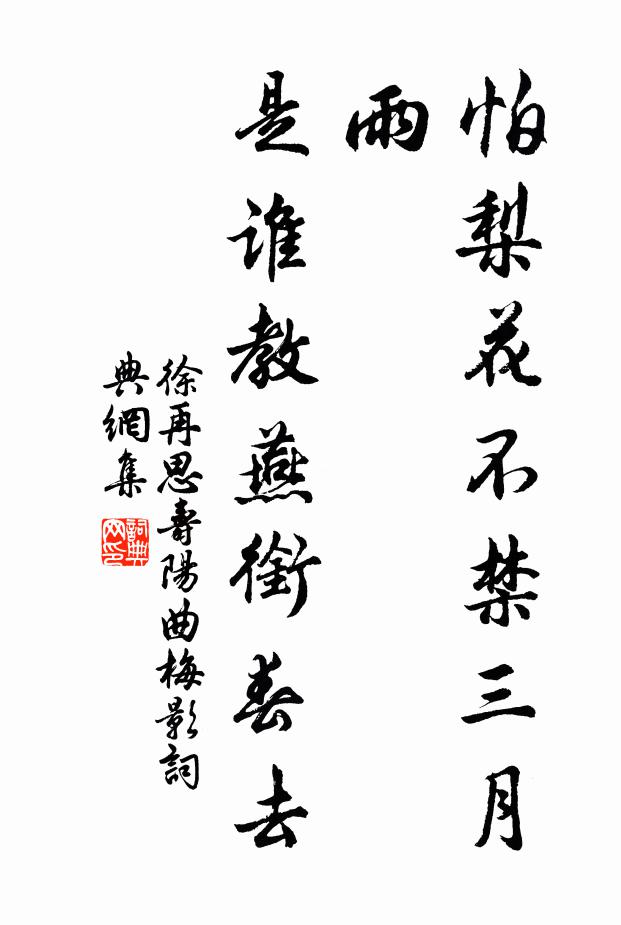 怕梨花不禁三月
雨
是誰教燕銜春去
徐再思壽陽曲梅影詞
典網集
詞典网印